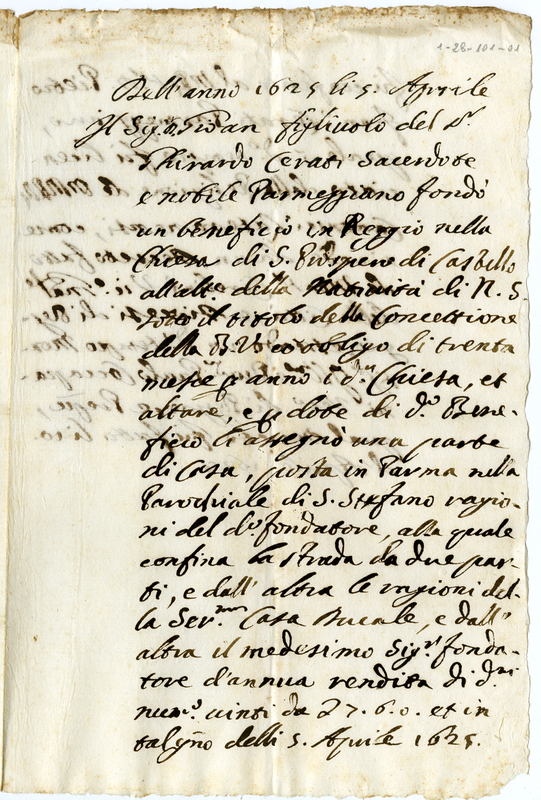 1-28-101-01
Dell'anno 1625 li 5. Aprile
Il Sig.r Gioan figliuolo del S.r
Ghirardo Cerati Sacerdote
e nobile Parmeggiano fondò
un beneficio in Reggio nella
Chiesa di S. Prospero di Castello
all'alt.e della Natività di N. S.
sotto il titolo della Concettione
della B. V. co obligo di trenta
messe p anno i d.a Chiesa, et
altare, e p dote di d.o Bene-
ficio li assegnò una parte
di Casa, posta in Parma nella
Parochiale di S. Stefano ragio-
ni del d.o fondatore, alla quale
confina la strada da due par-
ti, e dall' altra le ragioni del-
la Ser.ma Casa Ducale, e dall'
altra il medesimo Sig.r fonda-
tore d'annua rendita di d.ni
num.o vinti da 27. 6. 0. et in
tal gño delli 5. Aprile 1625.